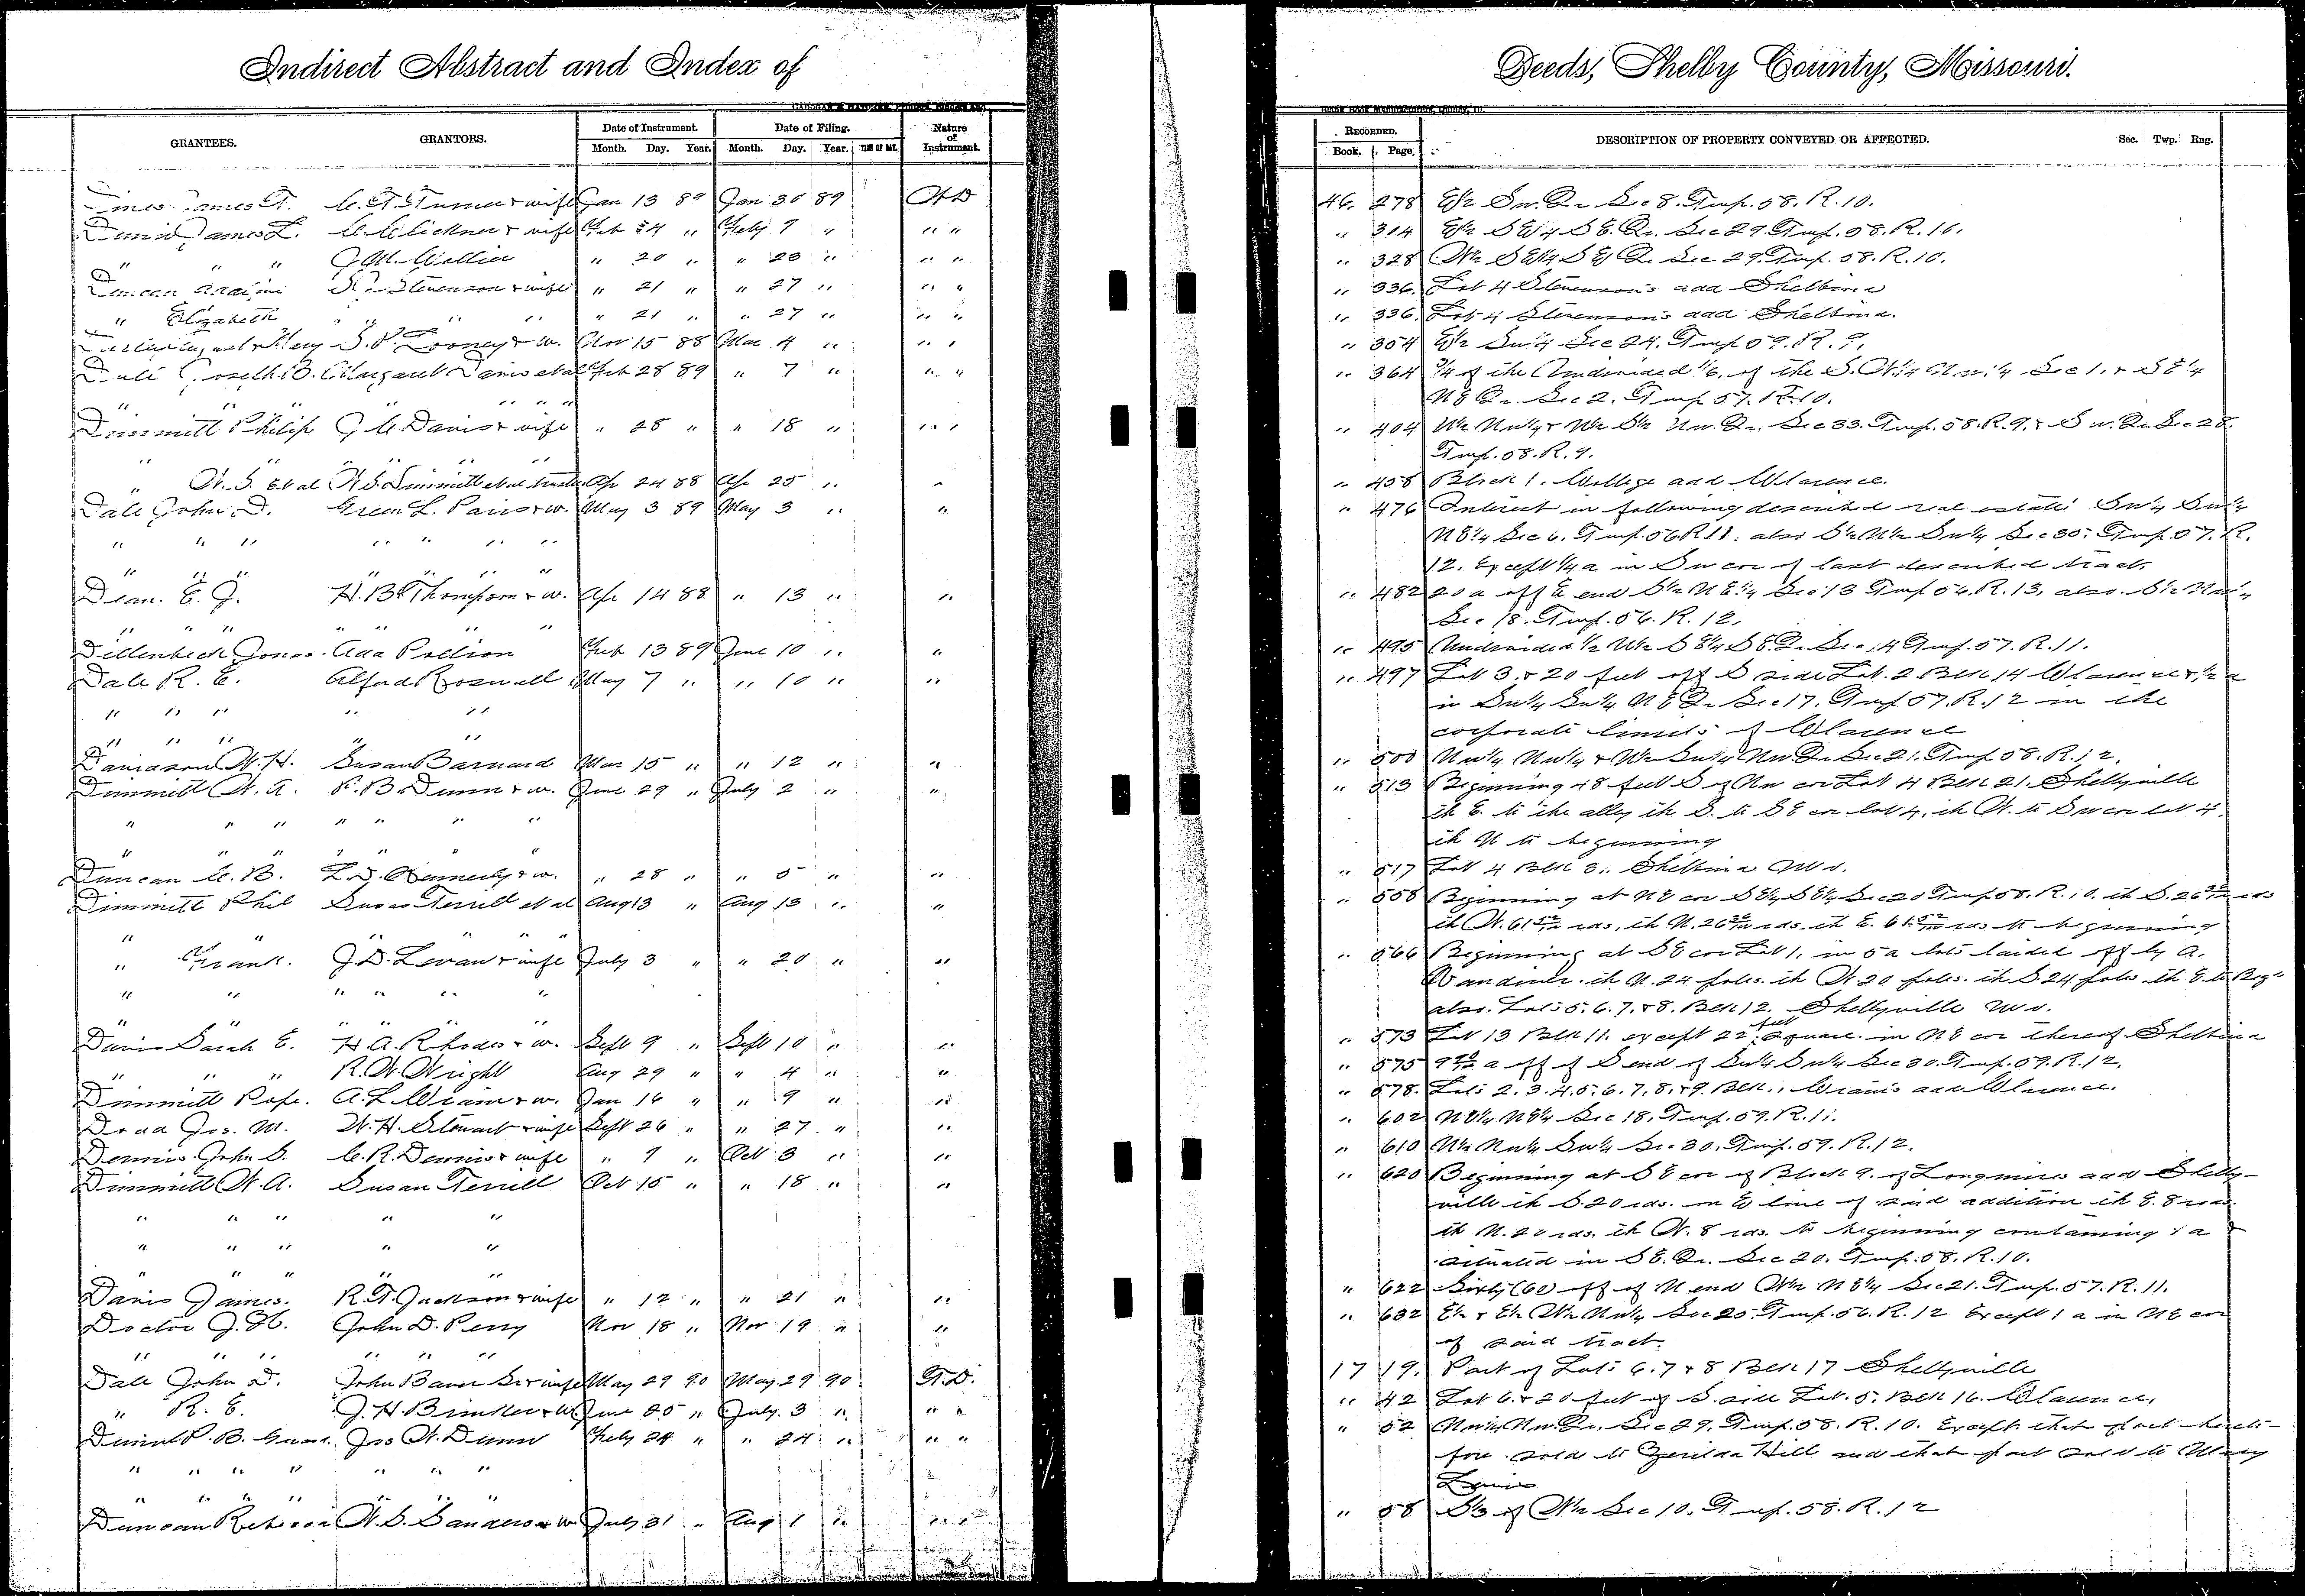 Indirect Abstract and Index of
Deeds, Shelby County, Missouri.
GRANTEES. GRANTORS. Date of Instrument. Month. Day. Year. Date of Filing. Month. Day. Year. Nature of Instrument.
RECORDED. Book. Page. DESCRIPTION OF PROPERTY CONVEYED OR AFFECTED. Sec. Twp. Rng.
James T. C. T. Turner & wife Jan 13 89 Jan 30 89 W D 46. 278 E½ Sw. Qr Sec 8. Twp. 58. R. 10.
James L. & wife Feb " Feby 9 " " " " 314 E½ S E¼ S E. Qr. Sec 29 Twp. 58. R. 10.
" " " " 20 " " 23 " " " " 328 W½ S E¼ S E Qr Sec 29. Twp. 58. R. 10.
Duncan Stevenson & wife " 21 " " 27 " " " " 336. Lot 4 Stevenson's add Shelbina
" Elizabeth " " " " " 21 " " 27 " " " " 336. Lot 4 Stevenson's add Shelbina.
Mary Looney & w. Nov 15 88 Mar 4 " " " " 354 E½ Sw¼ Sec 24. Twp 59. R. 9.
Joseph B. Margaret Davis et al Feb 28 89 " 7 " " " " 364 of the Undivided 1/6. of the S. W. ¼ N. w. ¼ Sec 1. & S E ¼
" " " " " " N E Qr. Sec 2. Twp 57. R. 10.
Dimmitt Philip J. C. Davis & wife " 28 " " 18 " " " " 404 W½ Nw¼ & W½ S½ Nw. Qr. Sec 33. Twp. 58. R. 9. & S w. Qr Sec 28.
" " " " " " Twp. 58. R. 9.
" W. S. et al W. S. Dimmitt et al Apr 24 88 Apr 25 " " " 458 Block 1. College add Clarence.
Dale John D. Green L. Paris & w. May 3 89 May 3 " " " 476 Interest in following described real estate Sw¼ Sw¼
" " " " " " " N E¼ Sec 6. Twp. 56 R 11. also S½ N½ Sw¼ Sec 30. Twp. 57. R.
" " " " " " " 12. Except ¼ a in Sw cor of last described tract.
Dean. E. J. H. B. Thompson & w. Apr 14 88 " 13 " " " 482 20 a off E end S½ N E. ¼ Sec 13 Twp 56. R. 13, also. S½
" " " " " " " Sec 18. Twp. 56. R. 12.
Dillenbeck Jonas. Ada Feb 13 89 June 10 " " " 495 Undivided ½ W½ S E¼ S E. Qr Sec 14 Twp. 57. R. 11.
Dale R. E. Boswell May 7 " " 10 " " " 497 Lot 3. & 20 feet off S side Lot. 2 Blk 14 Clarence & ½ a
" " " " " in Sw¼ Sw¼ N E Qr Sec 17. Twp 57. R. 12 in the
" " " " " corporate limits of Clarence
Davidson W. H. Susan Barnard Mar 15 " " 12 " " " 500 Nw¼ Nw¼ & W½ Sw¼ Nw Qr Sec 21. Twp 58. R. 12.
Dimmitt W. A. R. B. Dunn & w. June 29 " July 2 " " " 513 Beginning 48 feet S of Nw cor Lot 4 Blk 21. Shelbyville
" " " " " " " th E. to the alley th S. to S E cor lot 4, th W. to Sw cor lot 4
" " " " " " " th N to beginning
Duncan C. B. & w. " 28 " " 5 " " " 517 Lot 4 Blk 3. Shelbina Mo.
Dimmitt Phil Susan Terrill et al Aug 13 " Aug 13 " " " 558 Beginning at N E cor S E¼ S E¼ Sec 20 Twp 58. R. 10. th S. 26 rds
" " " " " th W. 61 rds, th N. 26 rds. th E. 61 rds to beginning
" Frank. J. D. Levan & wife July 3 " " 20 " " " 566 Beginning at S E cor Lot 1, in 5 a lots laided off by A.
" " " " " " th N. 24 poles. th W 20 poles. th S 24 poles. th E. to Beg
" " " " " " also. Lots 5. 6. 7. & 8. Blk 12. Shelbyville Mo.
Davis Sarah E. H. A. Rhodes & w. Sept 9 " Sept 10 " " " 573 Lot 13 Blk 11. except 22 feet square. in N E cor thereof Shelbina
" " " R. W. Wright Aug 29 " " 4 " " " 575 a off of S end of Sw¼ Sw¼ Sec 30. Twp. 59. R. 12.
Dimmitt Pope. A. L & w. Jan 16 " " 9 " " " 578. Lots 2. 3. 4. 5. 6. 7. 8. & 9. Blk add Clarence.
Dodd Jos. M. W. H. Stewart & wife Sept 26 " " 27 " " " 602 Sec 18. Twp. 59. R. 11.
Dennis John S. C. R. Dennis & wife " 9 " Oct 3 " " " 610 W½ Nw¼ Sw¼ Sec 30. Twp. 59. R. 12.
Dimmitt W. A. Susan Terrill Oct 15 " " 18 " " " 620 Beginning at S E cor of Block 9. of Longmires add Shelby-
" " " " " ville th S. 20 rds. on E line of said addition th E. 8 rods
" " " " " th N. 20 rds. th W. 8 rds. to beginning containing 1 a
" " " " " situated in S E. Qr. Sec 20. Twp. 58. R. 10.
Davis James. R. T. Jackson & wife " 12 " " 21 " " " 622 Sixty (60) off of N end W½ N E¼ Sec 21. Twp. 57. R. 11.
Doctor J. H. John D. Perry Nov 18 " Nov 19 " " " 632 E½ & E½ W½ Nw¼ Sec 20. Twp. 56. R. 12 Except 1 a in N E cor
" " " " " " of said tract.
Dale John D. John Bauer Sr & wife May 29 90 May 29 90 W. D. 17 19. Part of Lots 6. 7 & 8 Blk 17 Shelbyville
" R. E. J. H. & w June " July. 3 " " " " 42 Lot 6. & 20 feet of S. side Lot. 5. Blk 16. Clarence.
R. B. Jas W. Dunn Feby 24 " " 24 " " " " 52 Nw¼ Nw. Qr. Sec 29. Twp. 58. R. 10. Except that part hereto-
" " " " " " " fore sold to Zerilda Hill and that part sold to Mary
" " " " " " "
Duncan Rebecca W. S. Sanders & w July 31 " Aug 1 " " " " 58 S⅓ of W½ Sec 10. Twp. 58. R. 12